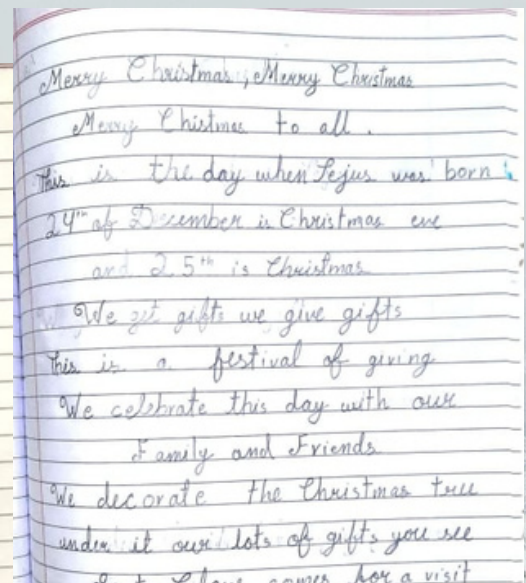 Merry Christmas, Merry Christmas
Merry Chistmas to all.
This is the day when Jejus was born
24th of December is Christmas eve
and 25th is Christmas
We get gifts we give gifts
This is a festival of giving
We celebrate this day with our
Family and Friends
We decorate the Christmas tree
under it our lots of gifts you see
comes for a visit